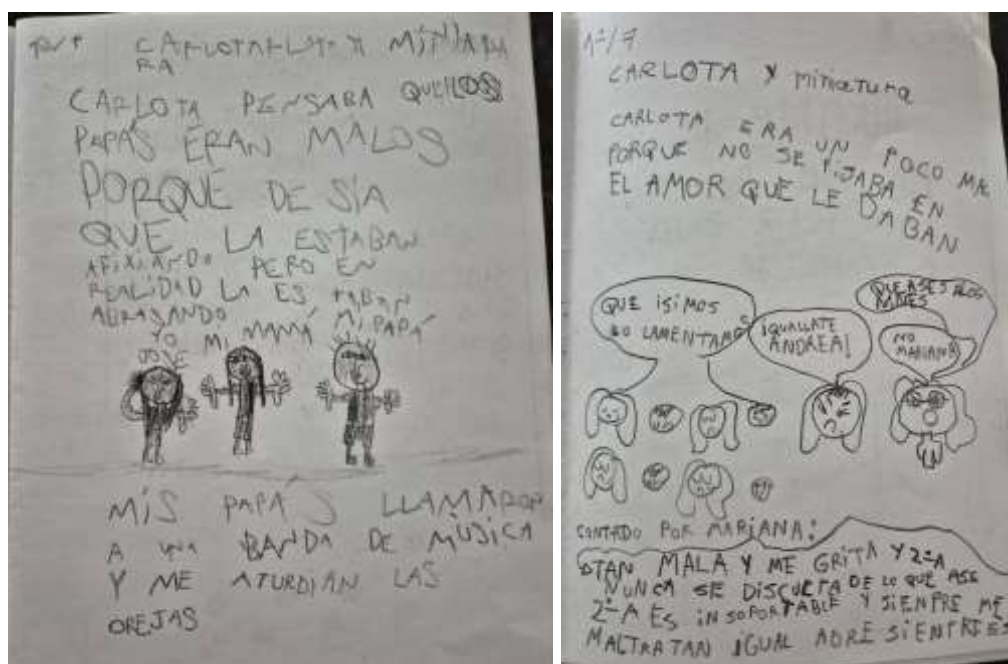 CARLOTA PENSABA QUE LOS
PAPÁS ERAN MALOS
PORQUE DE SÍA
QUE LA ESTABAN
AFIXIANDO PERO EN
REALIDAD LA ES TABAN
ABRASANDO
YO
JOVE
MI MAMÁ
MI PAPÁ
MIS PAPÁS LLAMARON
A UNA BANDA DE MÚSICA
Y ME ATURDIAN LAS
OREJAS
CARLOTA Y MINIATURA
CARLOTA ERA UN POCO MAL
PORQUE NO SE FIJABA EN
EL AMOR QUE LE DABAN
QUE ISIMOS
LO LAMENTAMOS
¡QUALLATE
ANDREA!
QUE ASES
NO
MARIANA
CONTADO POR MARIANA:
MALA Y ME GRITA Y 2º A
NUNCA SE DISCULTA DE LO QUE ASE
2º A ES INSOPORTABLE Y SIENPRE ME
MALTRATAN IGUAL